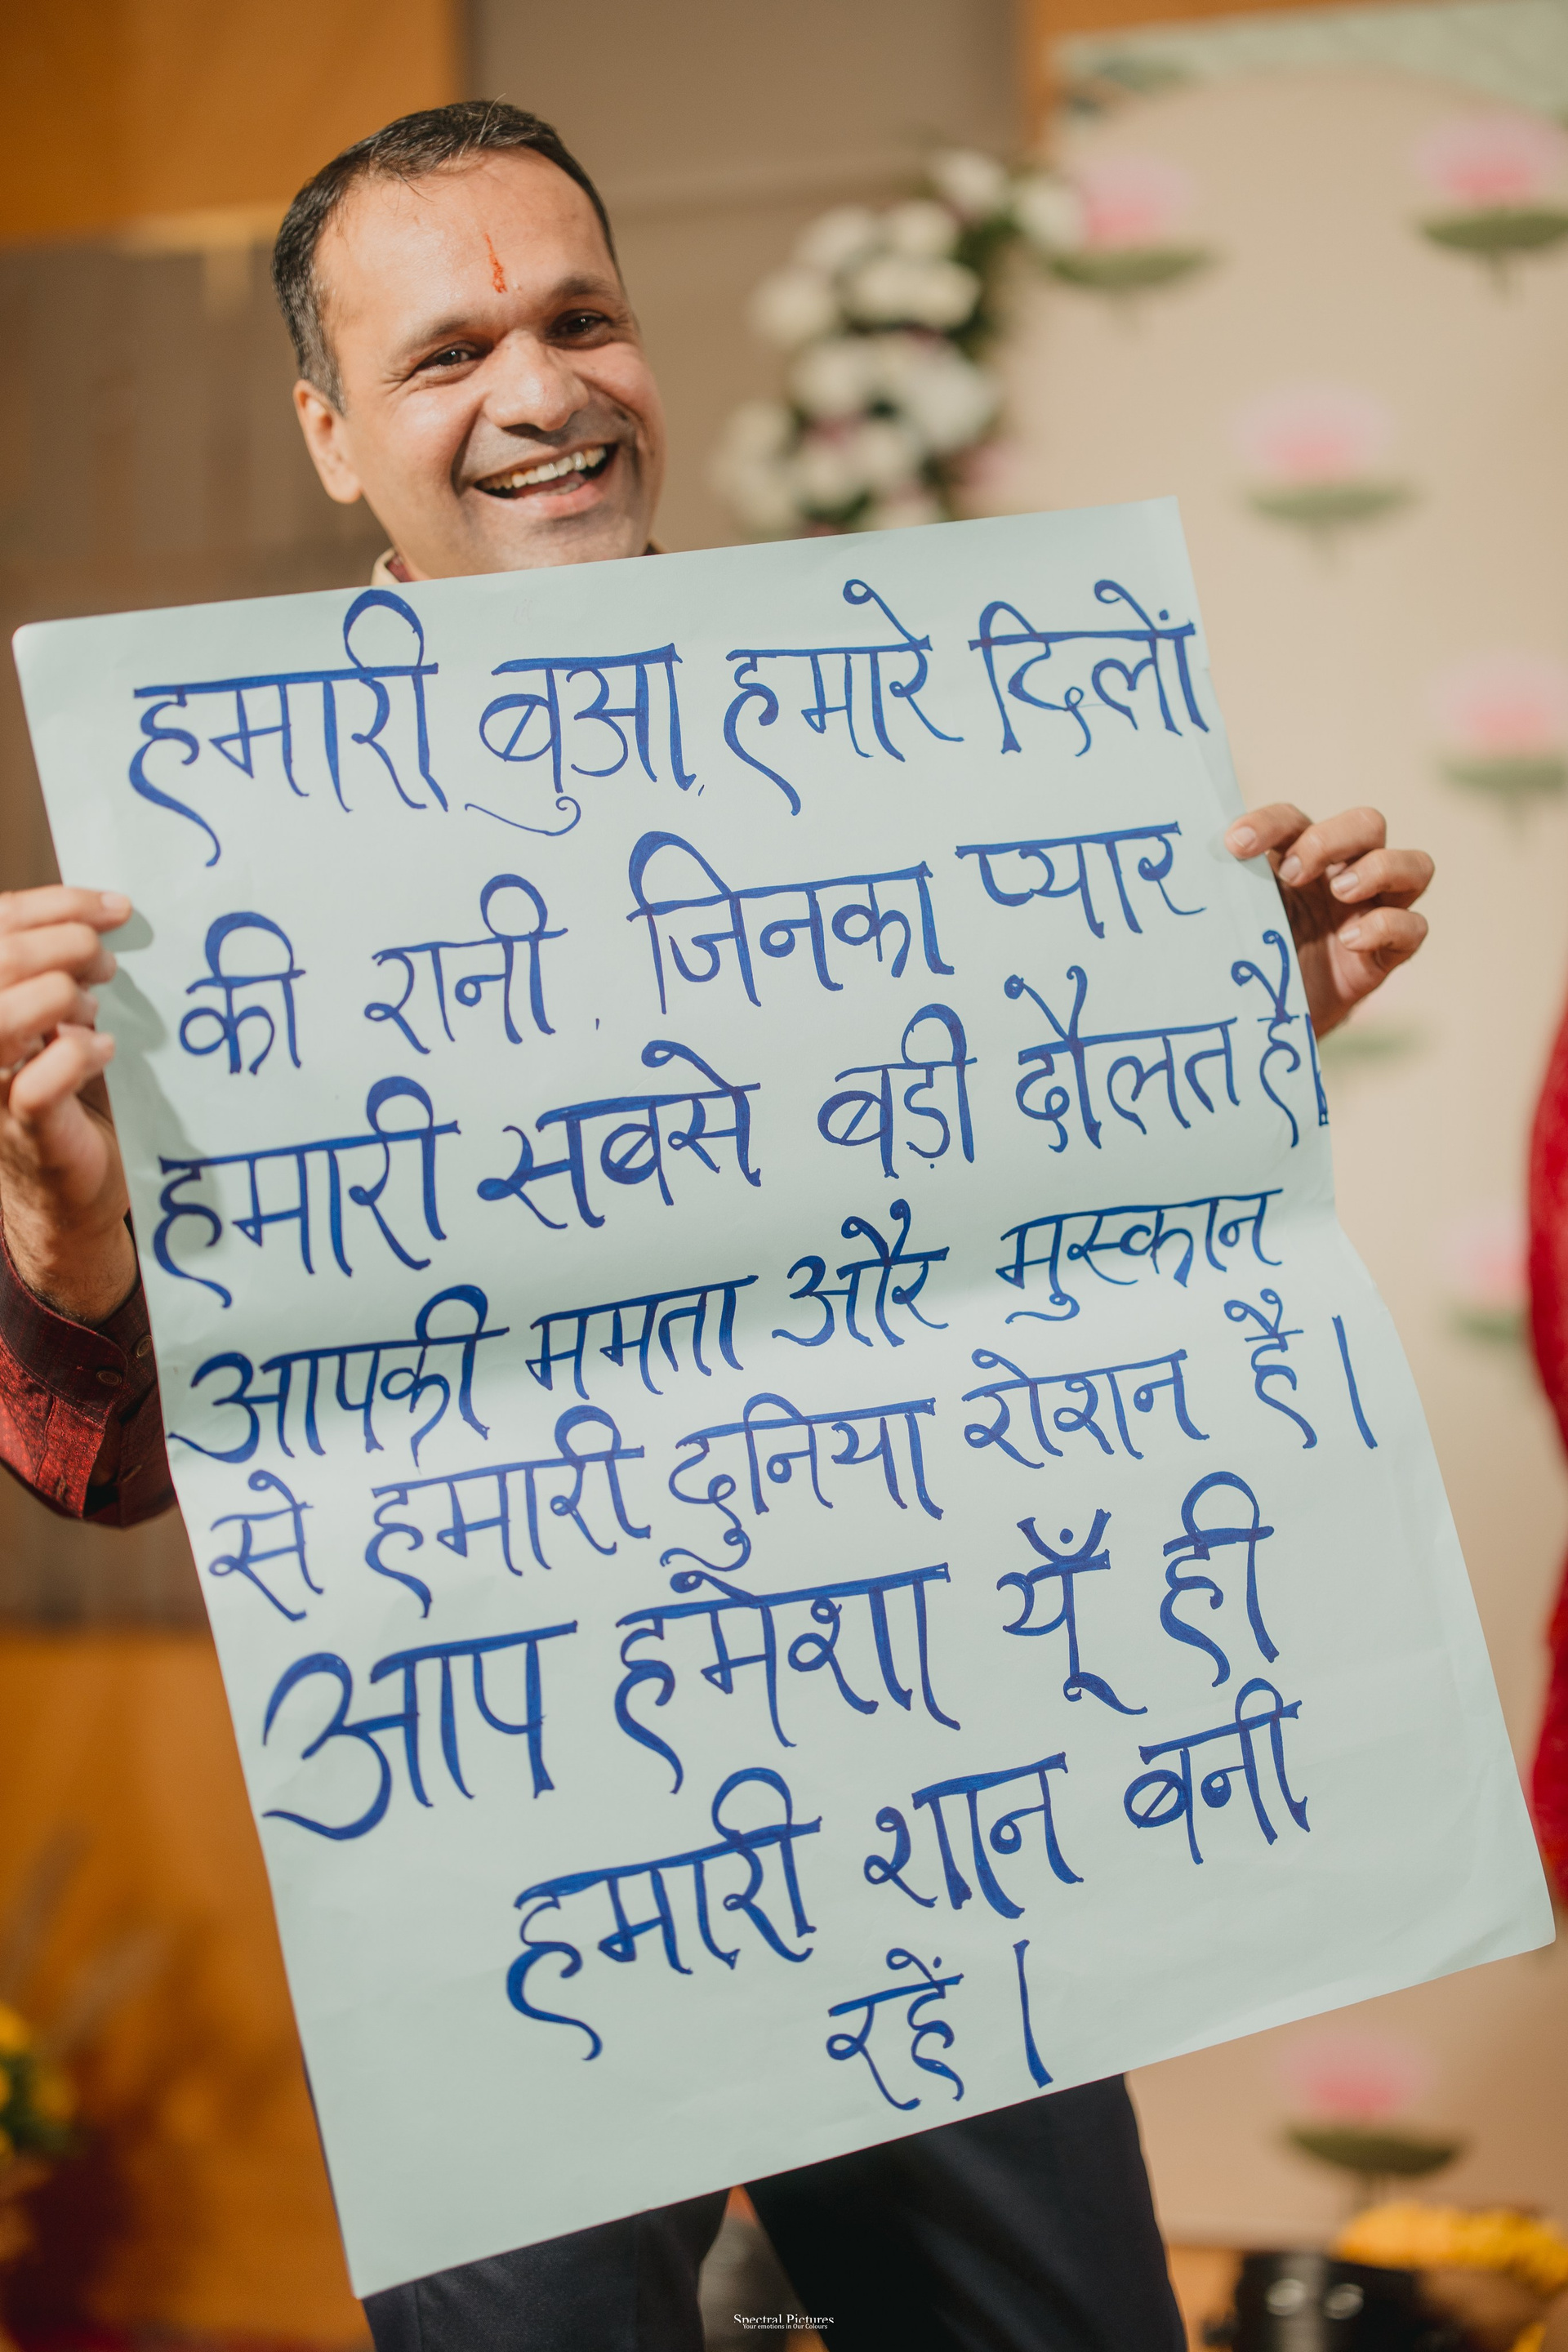 हमारी बुआ, हमारे दिलों
की रानी, जिनका प्यार
हमारी सबसे बड़ी दौलत है।
आपकी ममता और मुस्कान
से हमारी दुनिया रोशन है।
आप हमेशा यूँ ही
हमारी शान बनी
रहें।
Spectral Pictures
Your emotions in Our Colours